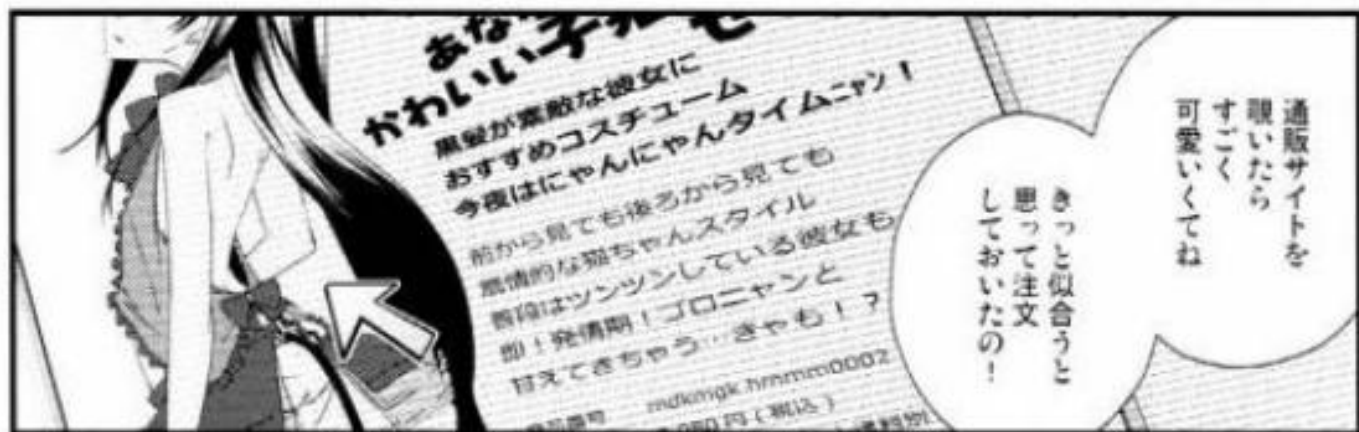 通販サイトを
覗いたら
すごく
可愛いくてね
きっと似合うと
思って注文
しておいたの!
あな
かわいい子
黒髪が素敵な彼女に
おすすめコスチューム
今夜はにゃんにゃんタイムニャン!
前から見ても後ろから見ても
扇情的な猫ちゃんスタイル
普段はツンツンしている彼女も
即!発情期!ゴロニャンと
甘えてきちゃう…きゃも!?
商品番号 mdkmgk.hmmm0002
円(税込)
送料別